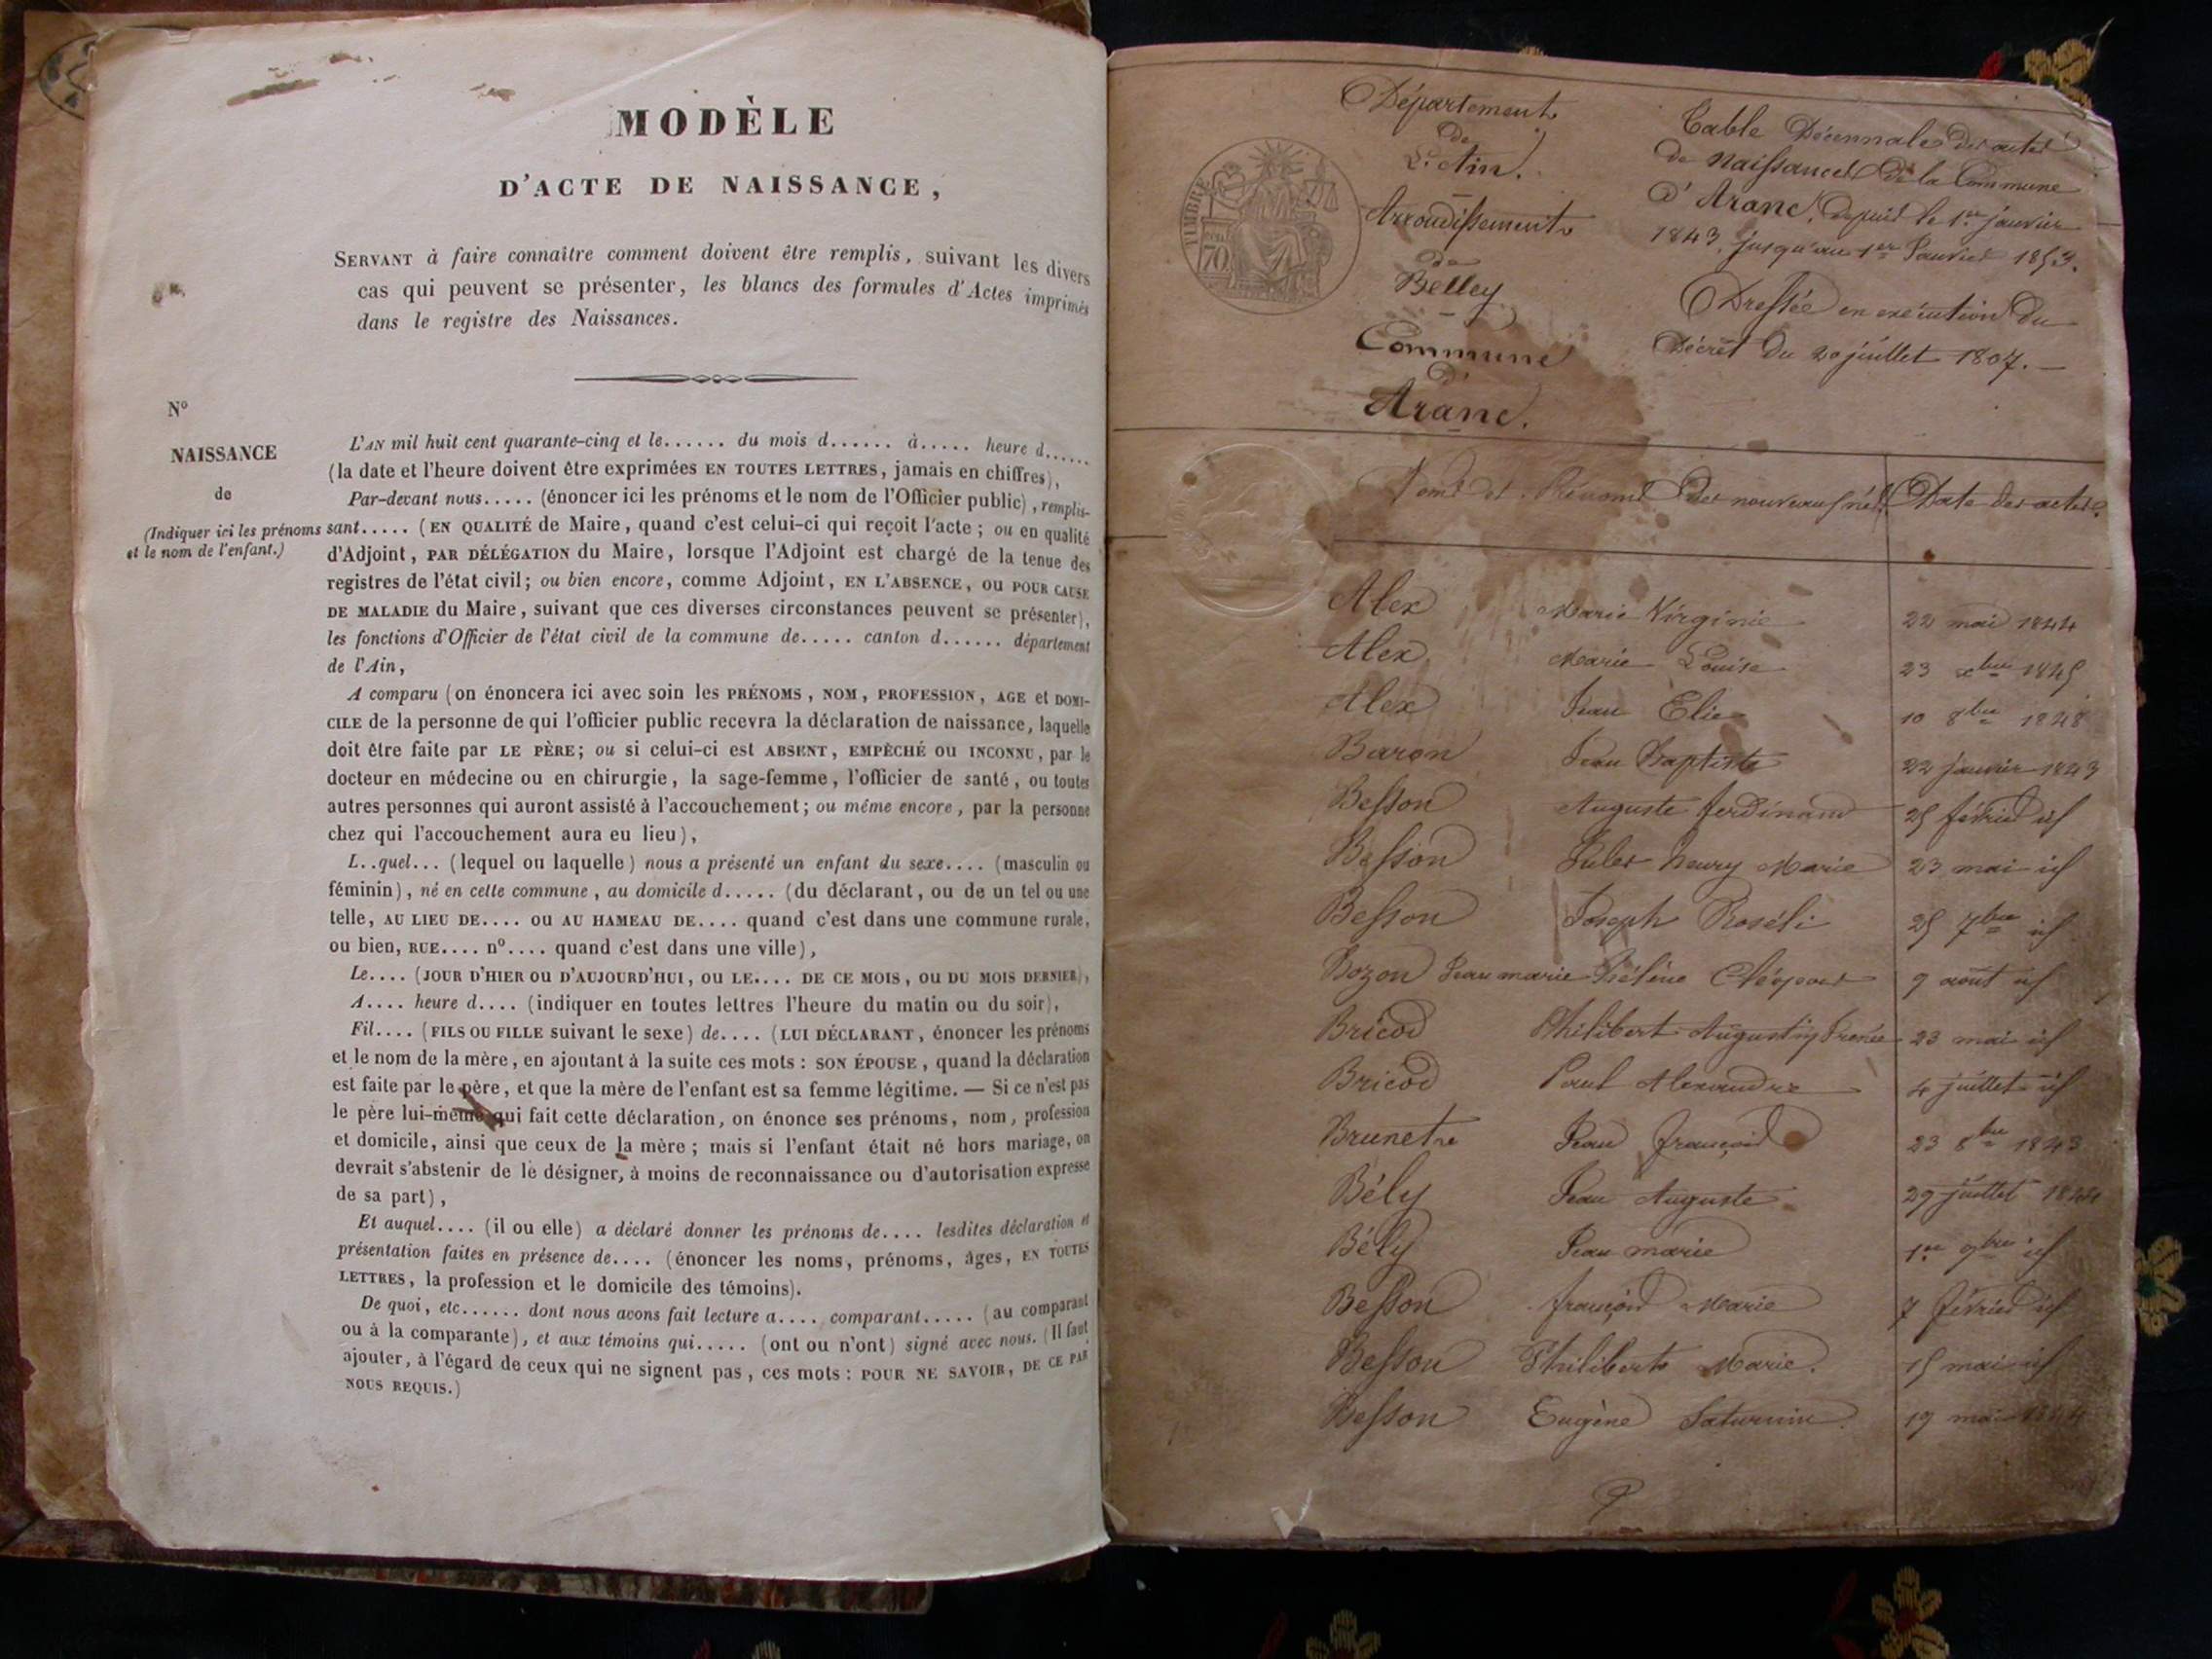 MODÈLE
D'ACTE DE NAISSANCE,
SERVANT à faire connaître comment doivent être remplis, suivant les divers
cas qui peuvent se présenter, les blancs des formules d'Actes imprimés
dans le registre des Naissances.
N°
NAISSANCE
de
(Indiquer ici les prénoms
et le nom de l'enfant.)
L'AN mil huit cent quarante-cinq et le...... du mois d...... à..... heure d......
(la date et l'heure doivent être exprimées EN TOUTES LETTRES, jamais en chiffres),
Par-devant nous..... (énoncer ici les prénoms et le nom de l'Officier public), remplis-
sant..... (EN QUALITÉ de Maire, quand c'est celui-ci qui reçoit l'acte; ou en qualité
d'Adjoint, PAR DÉLÉGATION du Maire, lorsque l'Adjoint est chargé de la tenue des
registres de l'état civil; ou bien encore, comme Adjoint, EN L'ABSENCE, OU POUR CAUSE
DE MALADIE du Maire, suivant que ces diverses circonstances peuvent se présenter),
les fonctions d'Officier de l'état civil de la commune de..... canton d...... département
de l'Ain,
A comparu (on énoncera ici avec soin les PRÉNOMS, NOM, PROFESSION, AGE et DOMI-
CILE de la personne de qui l'officier public recevra la déclaration de naissance, laquelle
doit être faite par LE PÈRE; ou si celui-ci est ABSENT, EMPÊCHÉ OU INCONNU, par le
docteur en médecine ou en chirurgie, la sage-femme, l'officier de santé, ou toutes
autres personnes qui auront assisté à l'accouchement; ou même encore, par la personne
chez qui l'accouchement aura eu lieu),
L..quel... (lequel ou laquelle) nous a présenté un enfant du sexe.... (masculin ou
féminin), né en cette commune, au domicile d..... (du déclarant, ou de un tel ou une
telle, AU LIEU DE.... OU AU HAMEAU DE.... quand c'est dans une commune rurale,
ou bien, RUE.... n°.... quand c'est dans une ville),
Le.... (JOUR D'HIER OU D'AUJOURD'HUI, OU LE.... DE CE MOIS, OU DU MOIS DERNIER),
A.... heure d.... (indiquer en toutes lettres l'heure du matin ou du soir),
Fil.... (FILS OU FILLE suivant le sexe) de.... (LUI DÉCLARANT, énoncer les prénoms
et le nom de la mère, en ajoutant à la suite ces mots: SON ÉPOUSE, quand la déclaration
est faite par le père, et que la mère de l'enfant est sa femme légitime. — Si ce n'est pas
le père lui-même qui fait cette déclaration, on énonce ses prénoms, nom, profession
et domicile, ainsi que ceux de la mère; mais si l'enfant était né hors mariage, on
devrait s'abstenir de le désigner, à moins de reconnaissance ou d'autorisation expresse
de sa part),
Et auquel.... (il ou elle) a déclaré donner les prénoms de.... lesdites déclaration et
présentation faites en présence de.... (énoncer les noms, prénoms, âges, EN TOUTES
LETTRES, la profession et le domicile des témoins).
De quoi, etc...... dont nous avons fait lecture a.... comparant..... (au comparant
ou à la comparante), et aux témoins qui..... (ont ou n'ont) signé avec nous. (Il faut
ajouter, à l'égard de ceux qui ne signent pas, ces mots: POUR NE SAVOIR, DE CE PAR
NOUS REQUIS.)
Département
de
L'Ain.
Arrondissement
de
Belley
Commune
d'
Aranc.
TIMBRE
70
Table Décennale des actes
de Naissances de la Commune
d'Aranc, depuis le 1er janvier
1843, jusqu'au 1er Janvier 1853.
Dressée en exécution du
Décret du 20 juillet 1807. —
Noms et Prénoms des nouveaux nés. Date des actes.
Alex Marie Virginie 22 mai 1844
Alex Marie Louise 23 xbre 1845
Alex Jean Elie 10 8bre 1848
Baron Jean Baptiste 22 janvier 1843
Besson Auguste ferdinand 25 février id
Besson Jules henry Marie 23 mai id
Besson Joseph Roséli 25 7bre id
Bozon Jean marie Hélène 9 août id
Bricod Philibert Augustin 23 mai id
Bricod Paul Alexandre 4 juillet id
Brunet Jean françois 23 8bre 1843
Bély Jean Auguste 29 juillet 1844
Bély Jean marie 1er 9bre id
Besson françois Marie 7 février id
Besson Philiberte Marie. 15 mai id
Besson Eugène Saturnin. 19 mai 1844